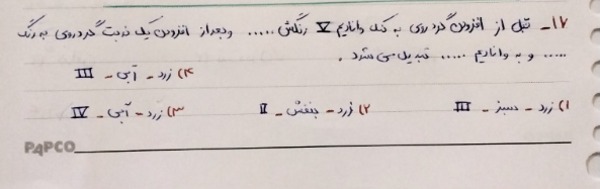 ۱۷- قبل از افزودن گرد روی به نمک وانادیم V رنگش ..... و بعد از افزودن یک نوبت گرد روی به رنگ
..... و به وانادیم ..... تبدیل می شود.
۴) زرد - آبی - III
۱) زرد - سبز - III ۲) زرد - بنفش - II ۳) زرد - آبی - IV
PAPCO